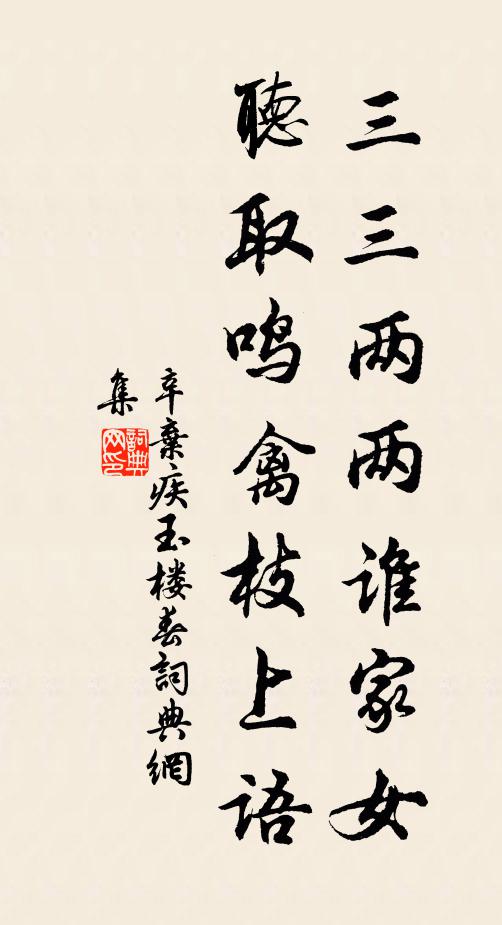 三三两两谁家女
聽取鸣禽枝上语
辛棄疾玉楼春詞典網
集
詞典
网印